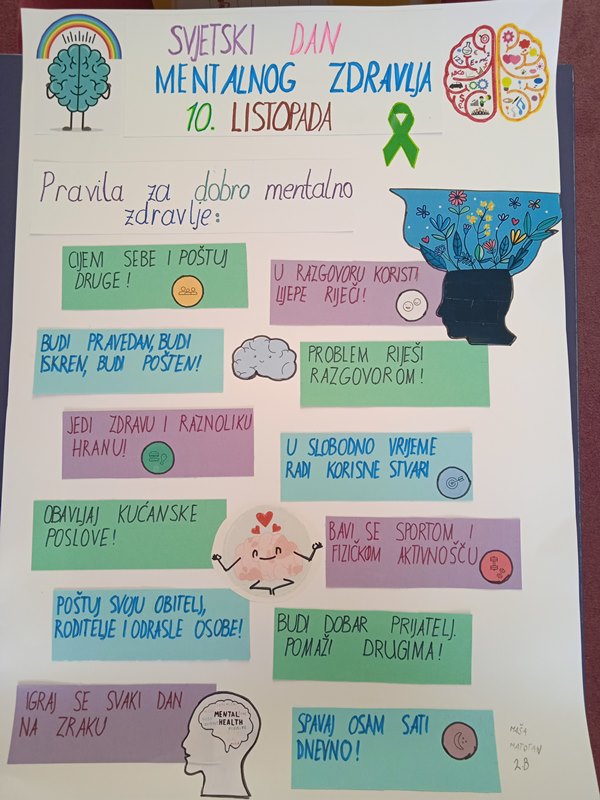 SVJETSKI DAN
MENTALNOG ZDRAVLJA
10. LISTOPADA
Pravila za dobro mentalno
zdravlje:
CIJENI SEBE I POŠTUJ
DRUGE!
U RAZGOVORU KORISTI
LIJEPE RIJEČI!
BUDI PRAVEDAN, BUDI
ISKREN, BUDI POŠTEN!
PROBLEM RIJEŠI
RAZGOVOROM!
JEDI ZDRAVU I RAZNOLIKU
HRANU!
U SLOBODNO VRIJEME
RADI KORISNE STVARI
OBAVLJAJ KUĆANSKE
POSLOVE!
BAVI SE SPORTOM I
FIZIČKOM AKTIVNOŠČU
POŠTUJ SVOJU OBITELJ,
RODITELJE I ODRASLE OSOBE!
BUDI DOBAR PRIJATELJ.
POMAŽI DRUGIMA!
IGRAJ SE SVAKI DAN
NA ZRAKU
MENTAL
HEALTH
SPAVAJ OSAM SATI
DNEVNO!
MAŠA
MATOTAN
2B